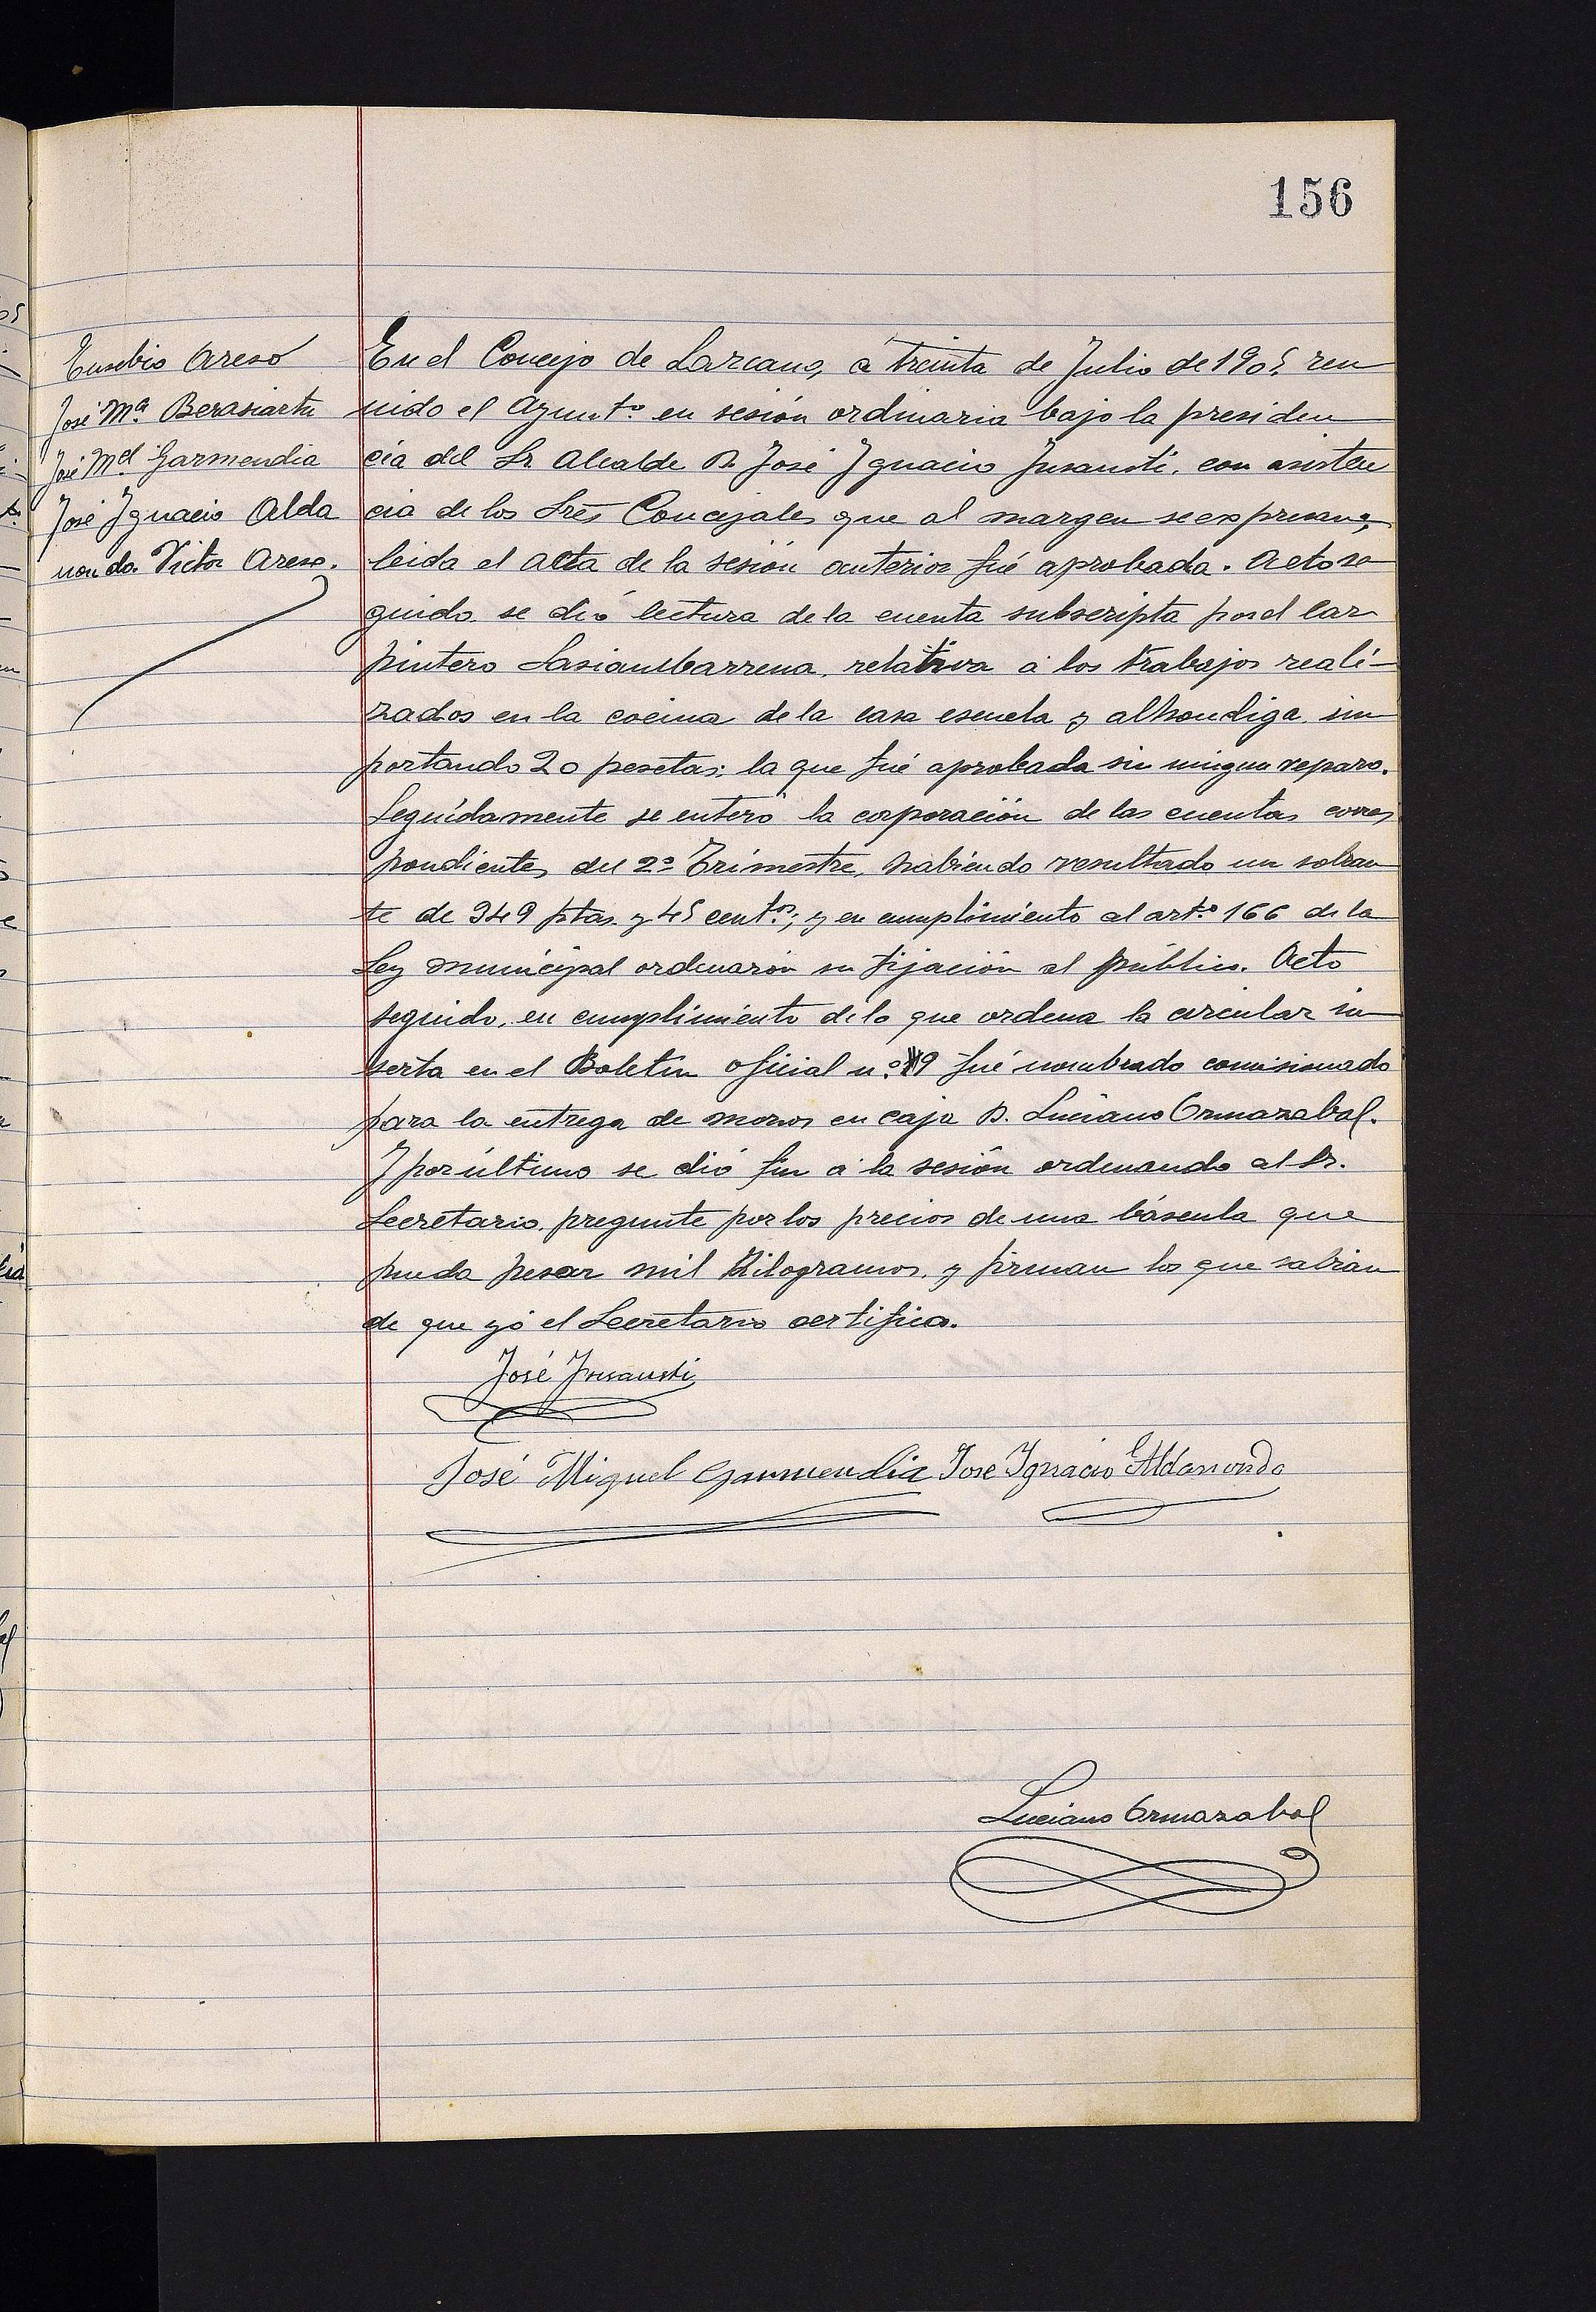 156
Eusebio Areso
José Mª Berasiartu
José Mel Garmendia
José Ignacio Alda
nondo. Victor Areso.
En el Concejo de Lazcano, á treinta de Julio de 1905 reu
nido el Ayuntº en sesión ordinaria bajo la presiden
cia del Sr. Alcalde D. José Ignacio Insausti, con asisten
cia de los Sres Concejales que al margen se expresan,
leida el acta de la sesión anterior fué aprobada. Acto se
guido se dió lectura de la cuenta subscripta por el car
pintero Lasiambarrena, relativa á los trabajos reali-
zados en la cocina de la casa escuela y alhondiga im
portando 20 pesetas; la que fué aprobada sin ningun reparo.
Seguidamente se enteró la corporación de las cuentas corres
pondientes del 2º Trimestre, habiendo resultado un sobran
te de 349 ptas. y 45 centos; y en cumplimiento al artº 166 de la
Ley municipal ordenarón su fijación al público. Acto
seguido, en cumplimiento de lo que ordena la circular in
serta en el Boletin oficial n.º 9 fué nombrado comisionado
para la entrega de mozos en caja D. Luciano Ormazabal.
Y por último se dió fin á la sesión ordenando al Sr.
Secretario, pregunte por los precios de una báscula que
pueda pesar mil Kilogramos, y firman los que sabian
de que yó el Secretario certifico.
José Insausti
José Miguel Garmendia José Ignacio Aldanondo
Luciano Ormazabal